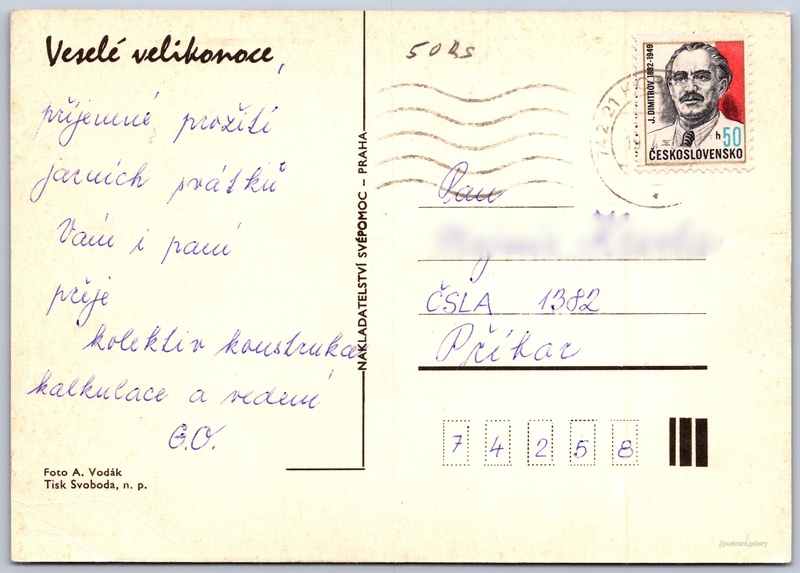 Veselé velikonoce,
příjemné prožití
jarních svátků
Vám i paní
přeje
kolektiv konstrukce
kalkulace a vedení
G.O.
Foto A. Vodák
Tisk Svoboda, n. p.
NAKLADATELSTVÍ SVÉPOMOC – PRAHA
50 hs
J. DIMITROV 1882-1949
h 50
ČESKOSLOVENSKO
742 21 K
Pan
ČSLA 1382
Příbor
7 4 2 5 8